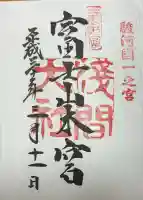 駿河國一之宮
富士山本宮
淺間大社
平成二十三年二月十一日